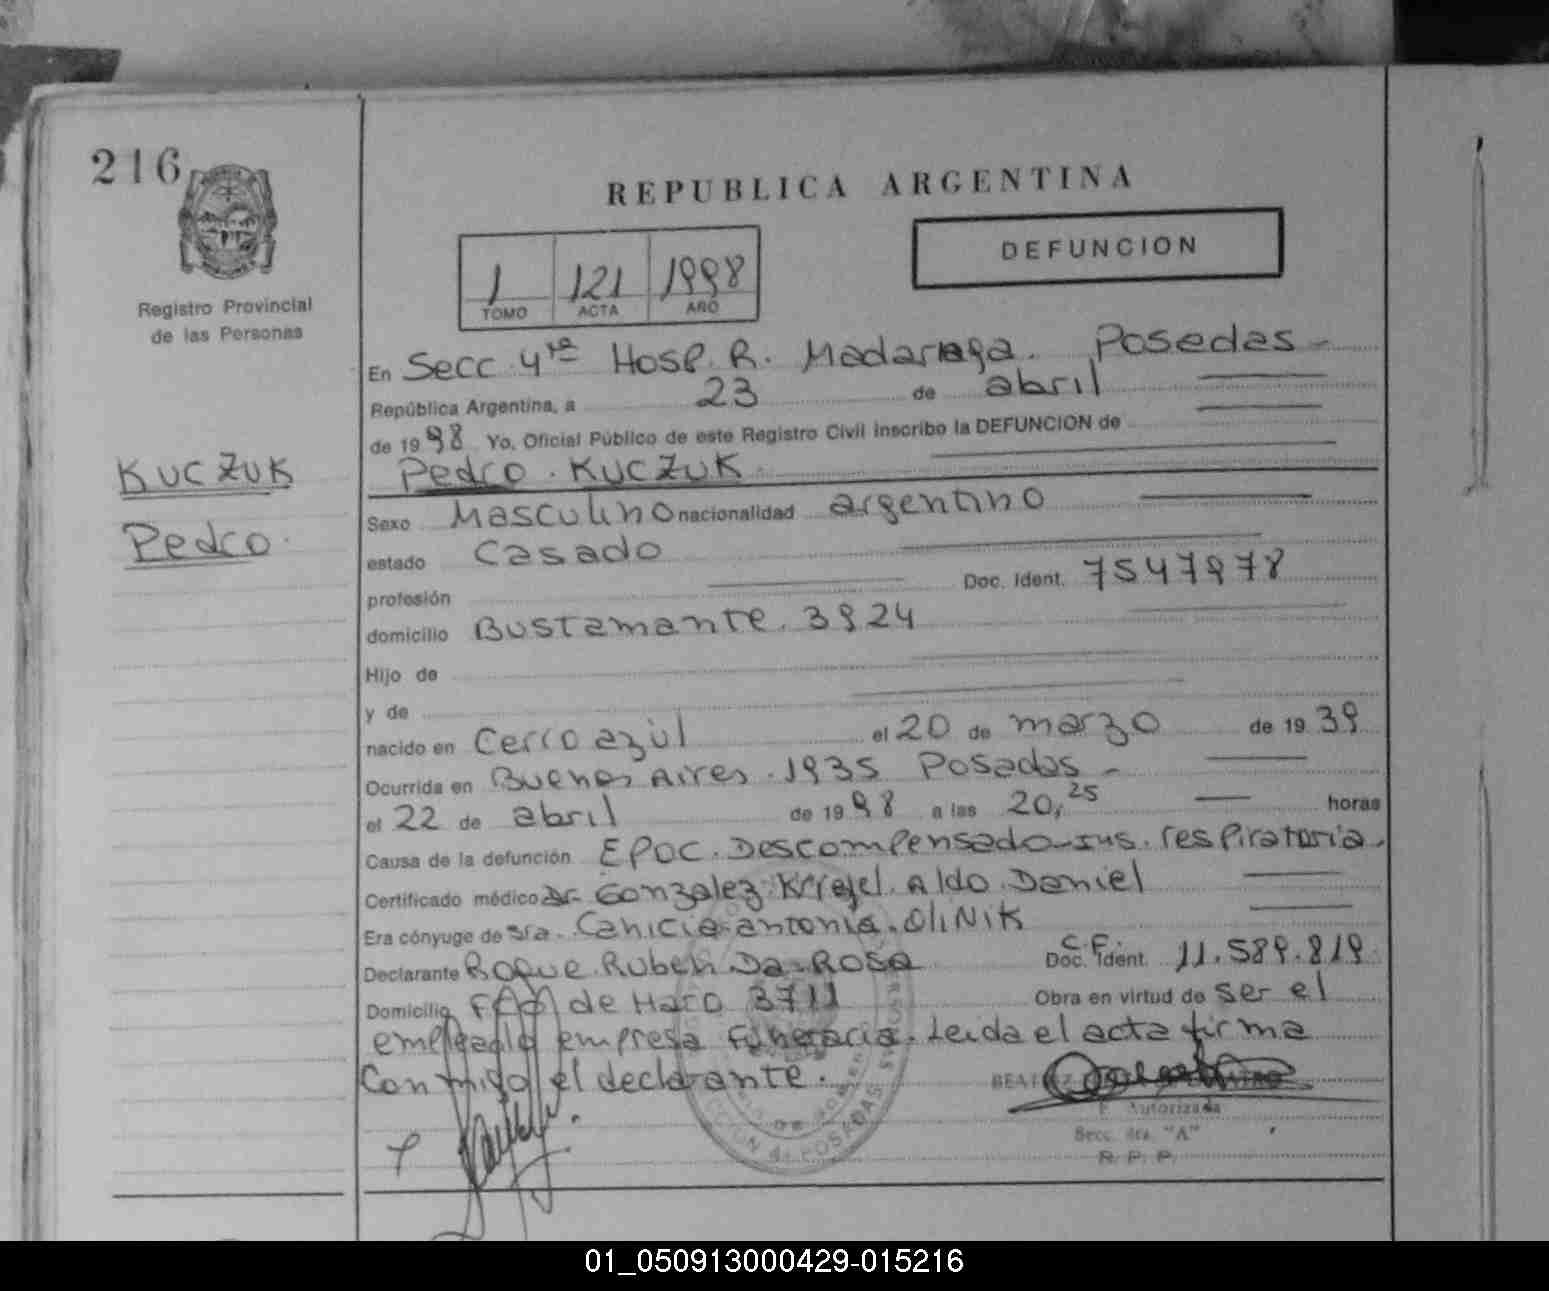 216
REPUBLICA ARGENTINA
DEFUNCION
1 121 1998
TOMO ACTA AÑO
Registro Provincial
de las Personas
En Secc. 4ta Hosp. R. Madariaga. Posadas
República Argentina, a 23 de abril
de 1998 Yo, Oficial Público de este Registro Civil inscribo la DEFUNCION de
KUCZUK
Pedro
Pedro KUCZUK
Sexo Masculino nacionalidad argentino
estado Casado
profesión Doc. Ident. 7547978
domicilio Bustamante. 3924
Hijo de
y de
nacido en Cerro azul el 20 de marzo de 1939
Ocurrida en Buenos Aires. 1935 Posadas
el 22 de abril de 1998 a las 20,25 horas
Causa de la defunción EPOC. Descompensado-Ins. respiratoria.
Certificado médico Dr. Gonzalez Aldo Daniel
Era cónyuge de Sra. antonia. OLINIK
Declarante Roque Ruben Da Rosa C.F. Doc. Ident. 11.589.819
Domicilio de Haro 3711 Obra en virtud de ser el
empleado empresa funeraria. Leida el acta firma
Conmigo el declarante.
BEATRIZ
F. Autorizada
Secc. 4ta. "A"
R. P. P.
SECCION 4ª POSADAS
01_050913000429-015216